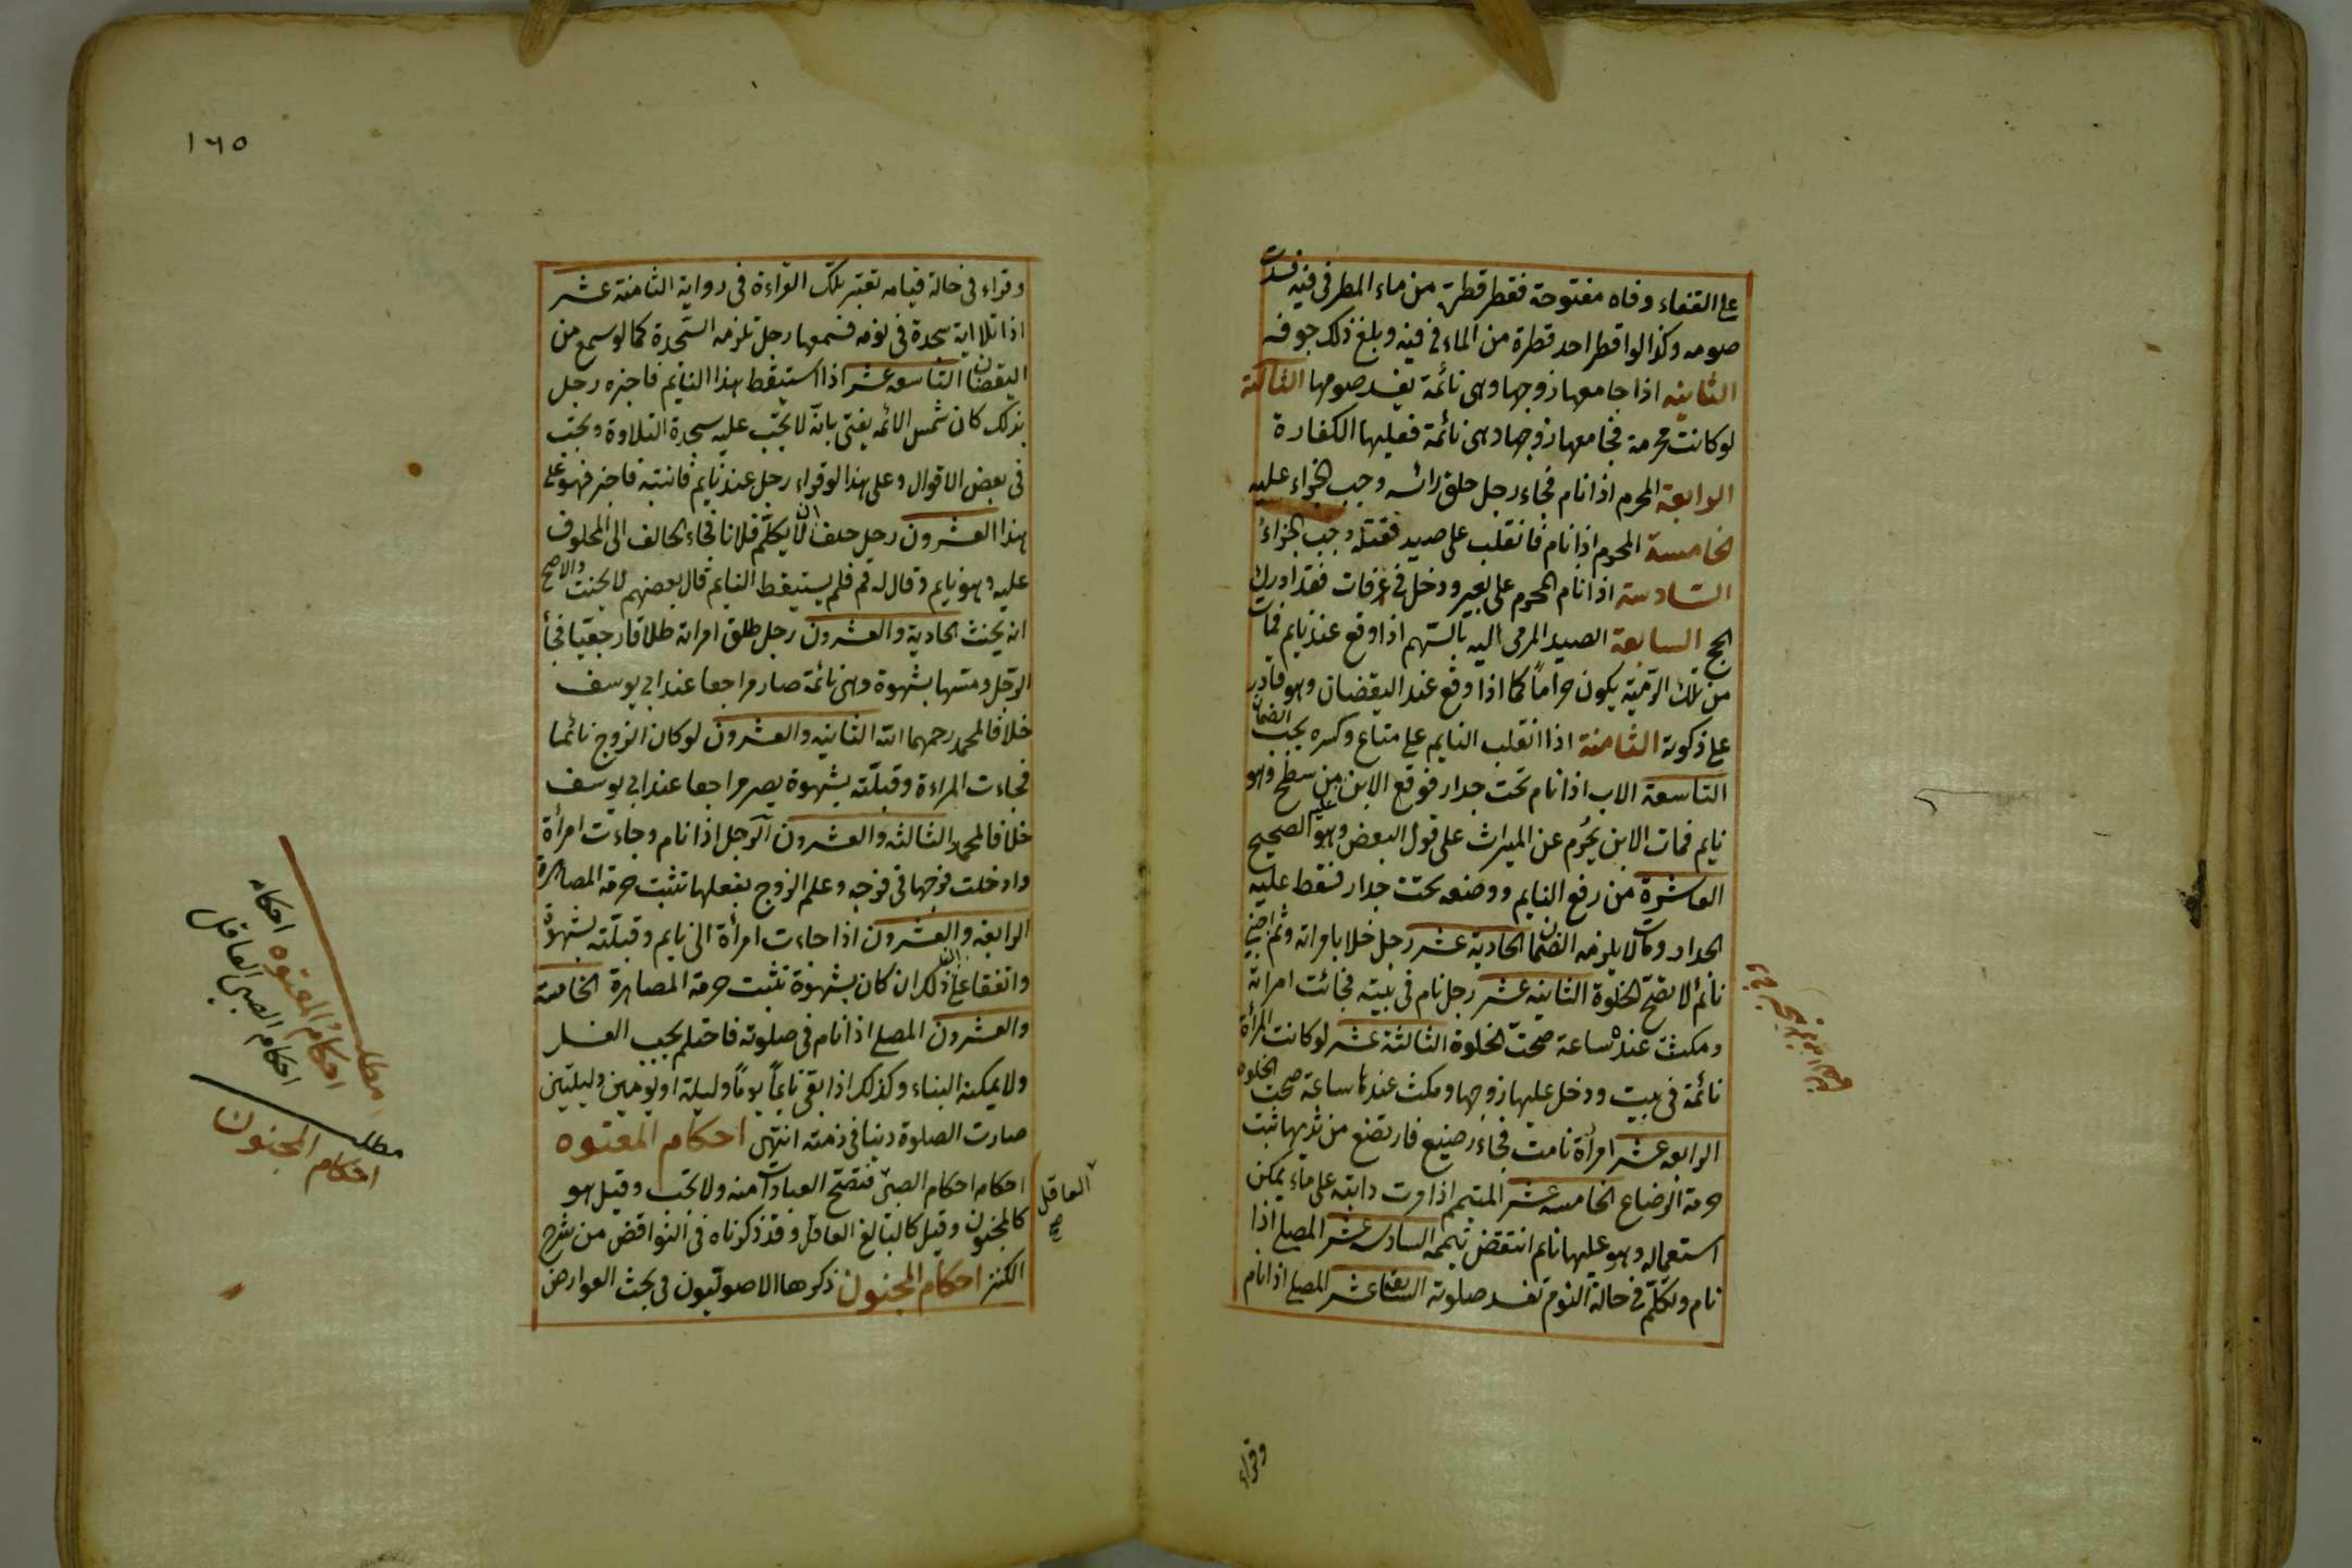 على القفاء وفاه مفتوحة فقطر قطرة من ماء المطر في فيه فسدت
صومه وكذا لو اقطر احد قطرة من الماء في فيه وبلغ ذلك جوفه
الثانية اذا جامعها زوجها وهى نائمة يفسد صومها الثالثة
لو كانت محرمة فجامعها زوجها وهى نائمة فعليها الكفارة
الرابعة المحرم اذا نام فجاء رجل حلق رائسه وجب الجزاء عليه
الخامسة المحرم اذا نام فانقلب على صيد فقتله وجب الجزاء
السادسة اذا نام المحرم على بعير ودخل في عرفات فقد ادرك
الحج السابعة الصيد المرمى اليه بالسهم اذا وقع عند نايم فمات
من تلك الرمية يكون حراماً كما اذا وقع عند اليقضان وهو قادر
على ذكوته الثامنة اذا انقلب النايم على متاع وكسره يجب الضمان
التاسعة الاب اذا نام تحت جدار فوقع الابن عليه من سطح وهو
نايم فمات الابن يحرم عن الميراث على قول البعض وهو الصحيح
العاشرة من رفع النايم ووضعه تحت جدار فسقط عليه
الجدار ومات لا يلزمه الضمان الحادية عشر رجل خلا بامراته وثم اجنبي
نائم لا تصح الخلوة الثانية عشر رجل نام في بيته فجائت امراته
ومكثت عنده ساعة صحت الخلوة الثالثة عشر لو كانت المرأة
نائمة في بيت ودخل عليها زوجها ومكث عندها ساعة صحت الخلوه
الرابعه عشر امرأة نامت فجاء رضيع فارتضع من ثديها تثبت
حرمة الرضاع الخامسه عشر المتيمم اذا مرت دابته على ماء يمكن
استعماله وهو عليها نايم انتقض تيممه السادسه عشر المصلى اذا
نام وتكلم في حالة النوم تفسد صلوته السابعة عشر المصلى اذا نام
وقراء
١٦٥
وقراء في حالة قيامه تعتبر تلك القراءة في رواية الثامنة عشر
اذا تلا اية سجدة في نومه فسمعها رجل تلزمه السجدة كما لو سمع من
اليقضان التاسعه عشر اذا استيقظ هذا النايم فاخبره رجل
بذلك كان شمس الائمه يفتى بانه لا تجب عليه سجدة التلاوة وتجب
في بعض الاقوال وعلى هذا لو قراء رجل عند نايم فانتبه فاخبر فهو على
هذا العشرون رجل حلف ان لا يكلم فلانا فجاء الحالف الى المحلوف
عليه وهو نايم وقال له قم فلم يستيقظ النايم قال بعضهم لا يحنث والاصح
انه يحنث الحادية والعشرون رجل طلق امراته طلاقا رجعيا فجأ
الرجل ومسها بشهوة وهى نائمة صار مراجعا عند ابى يوسف
خلافا لمحمد رحمهما الله الثانيه والعشرون لو كان الزوج نائما
فجاءت المراءة وقبلته بشهوة يصير مراجعا عند ابى يوسف
خلافا لمحمد الثالثه والعشرون الرجل اذا نام وجاءت امرأة
وادخلت فرجها في فرجه وعلم الزوج بفعلها تثبت حرمة المصاهرة
الرابعه والعشرون اذا جاءت امرأة الى نايم وقبلته بشهوة
واتفقا على ذلك ان كان بشهوة تثبت حرمة المصاهرة الخامسة
والعشرون المصلى اذا نام في صلوته فاحتلم يجب الغسل
ولا يمكنه البناء وكذلك اذا بقى نايماً يوماً وليلة او يومين وليلتين
صارت الصلوة دينا في ذمته انتهى احكام المعتوه
احكام احكام الصبى العاقل صح فتصح العبادات منه ولا تجب وقيل هو
كالمجنون وقيل كالبالغ العاقل وقد ذكرناه في النواقض من شرح
الكنز احكام المجنون ذكرها الاصوليون في بحث العوارض
مطلب
احكام المعتوه احكامه
احكام الصبى العاقل
مطلب
احكام المجنون